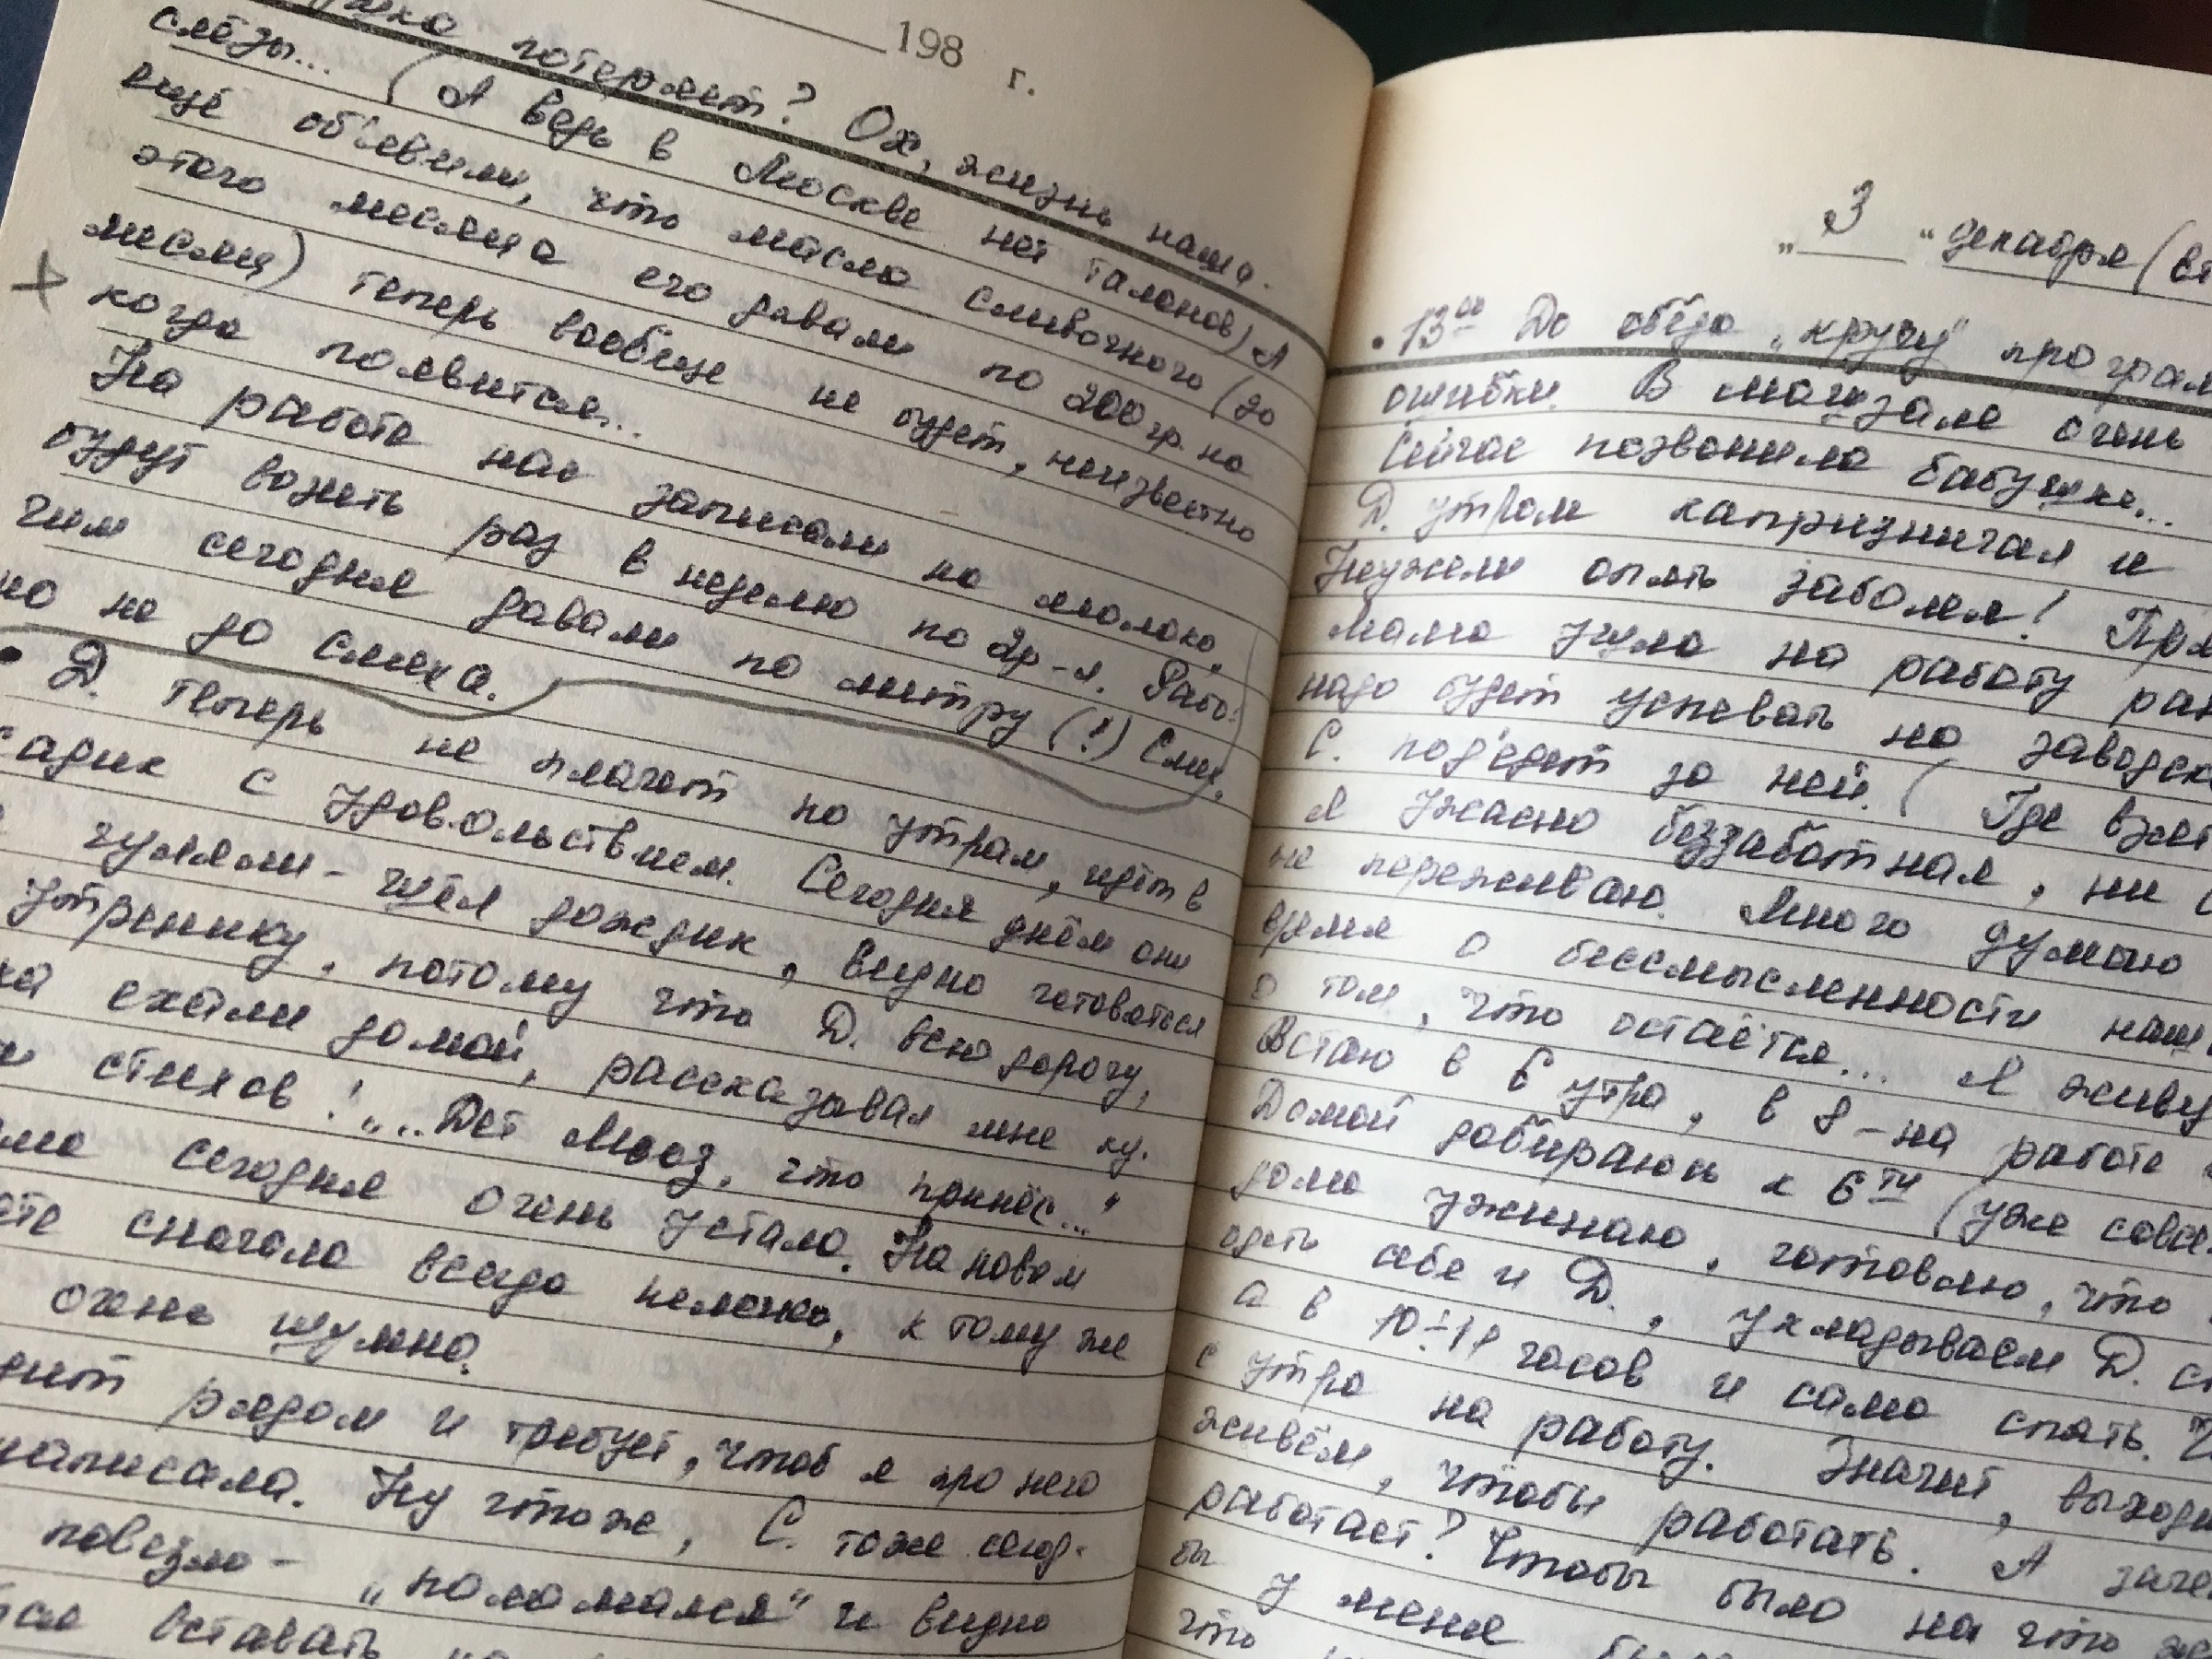 198 г.
потеряет? Ох, жизнь наша.
слёзы... (А ведь в Москве нет талонов) А
ещё об'явили, что масла сливочного (до
этого месяца его давали по 200 гр. на
месяц) теперь вообще не будет, неизвестно
когда появится...
На работе нас записали на молоко,
будут возить раз в неделю по 2р-л. Рабо-
чим сегодня давали по литру (!) Смех,
но не до смеха.
• Д. теперь не плачет по утрам, идёт в
садик с удовольствием. Сегодня днём они
гуляли - шёл дождик, видно готовятся
утреннику, потому что Д. всю дорогу,
ехали домой, рассказывал мне ку-
стихов! „...Дет Мооз, что принёс..."
сегодня очень устала. На новом
сначала всегда нелегко, к тому же
очень шумно.
рядом и требует, чтоб я про него
написала. Ну что же, С. тоже сегод-
повезло - „поломался" и видно
вставать
„3" декабря (вт
• 13⁰⁰ До обеда „кручу" програм
ошибки. В машзале очень
Сейчас позвонила бабушке...
Д. утром капризничал и
Неужели опять заболел! Прям
мама ушла на работу ран
надо будет успевать на заводск
С. под'едет за ней. (Где взят
Я ужасно беззаботная, ни о
не переживаю. Много думаю
время о бессмысленности наш
о том, что остаётся... Я живу
Встаю в 6 утра, в 8 - на работе
Домой добираюсь к 6ти (уже совсе
дома ужинаю, готовлю, что
одеть себе и Д., укладываем Д. сп
а в 10-11 часов и сама спать.
с утра на работу. Значит, выходи
живём, чтобы работать. А заче
работает? Чтобы было на что
бы у меня
что